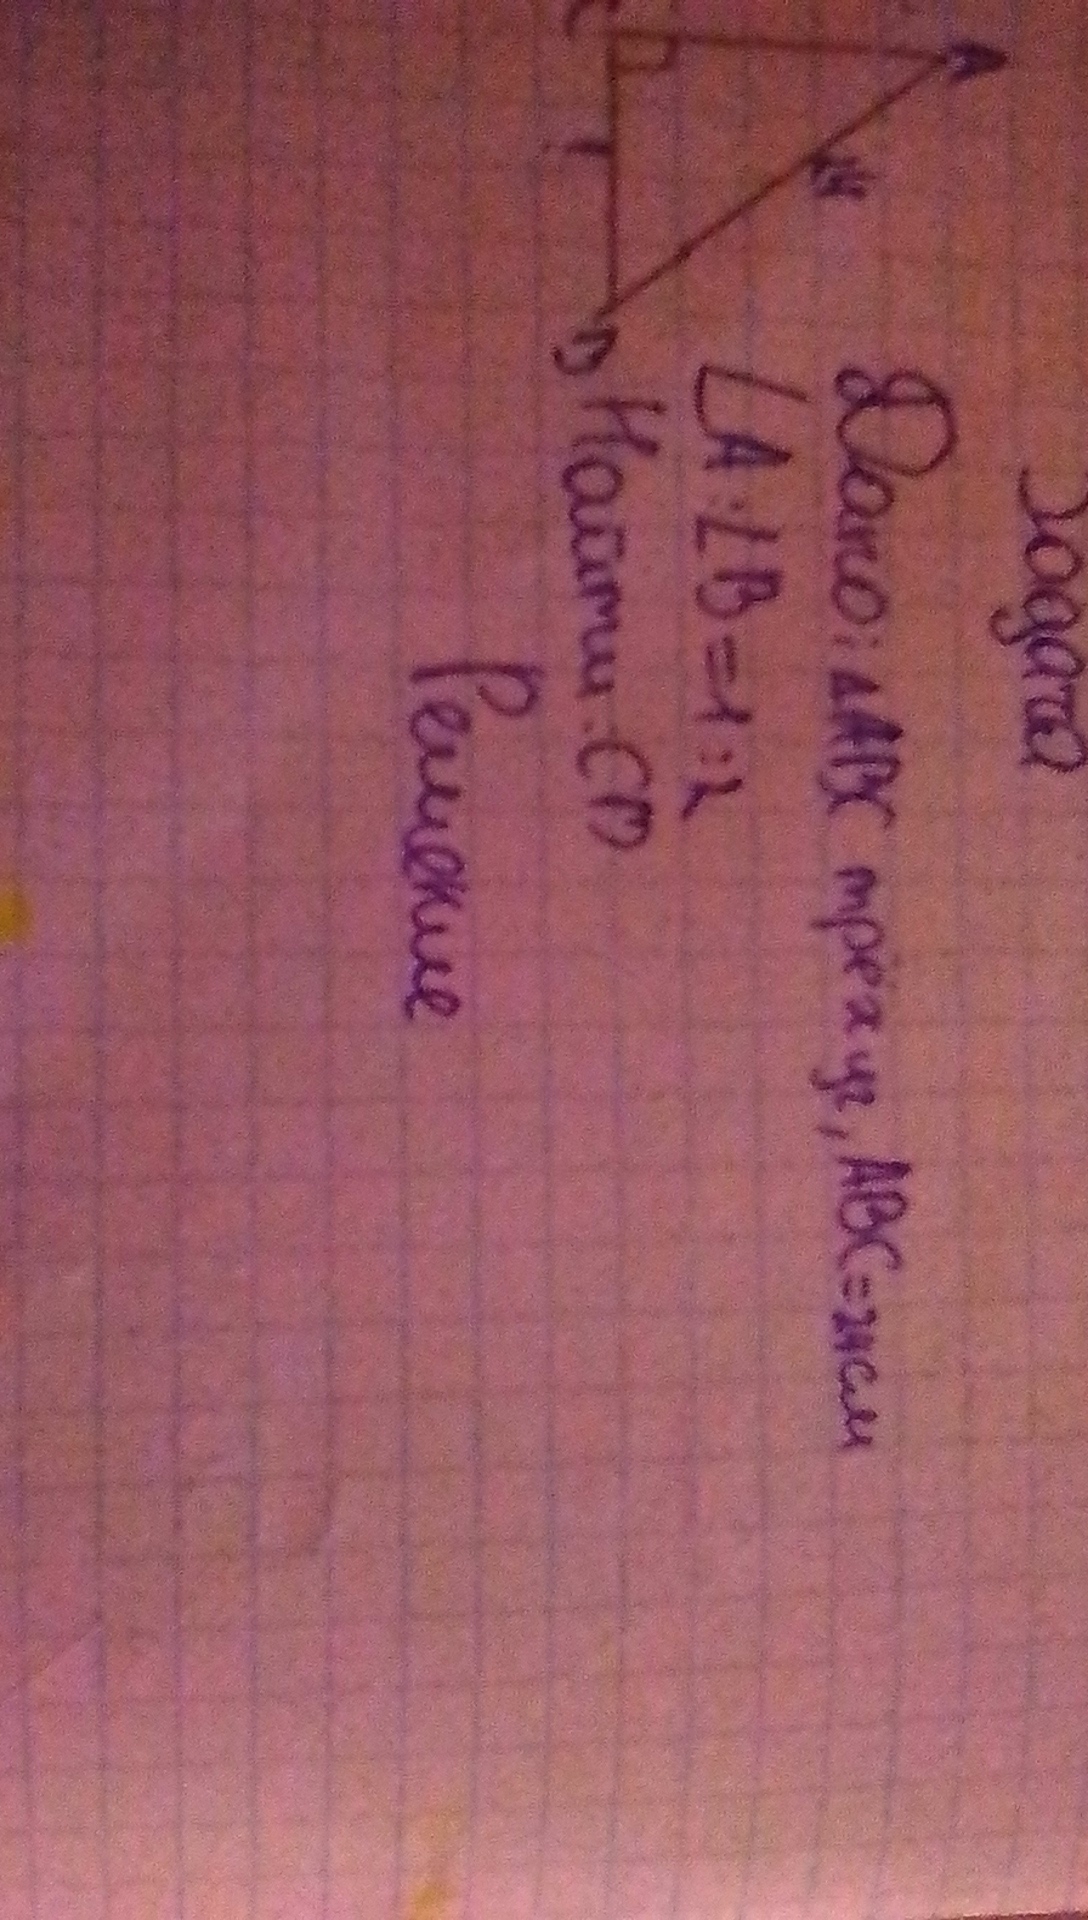 Задача
Дано: ΔABC трёхуг, ABC=24см
∠A:∠B=1:2
Найти: CB
Решение
A
24
C
?
B